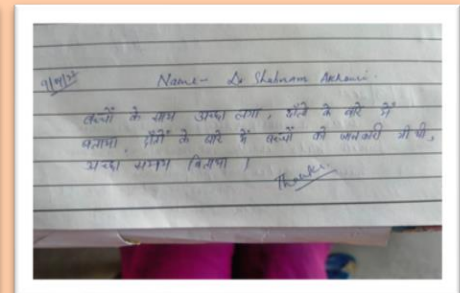 Name - Dr Shabnam
बच्चों के साथ अच्छा लगा, दाँतो के बारे में
बताया, दाँतों के बारे में बच्चों को जानकारी भी थी,
अच्छा समय बिताया।
Thanks.